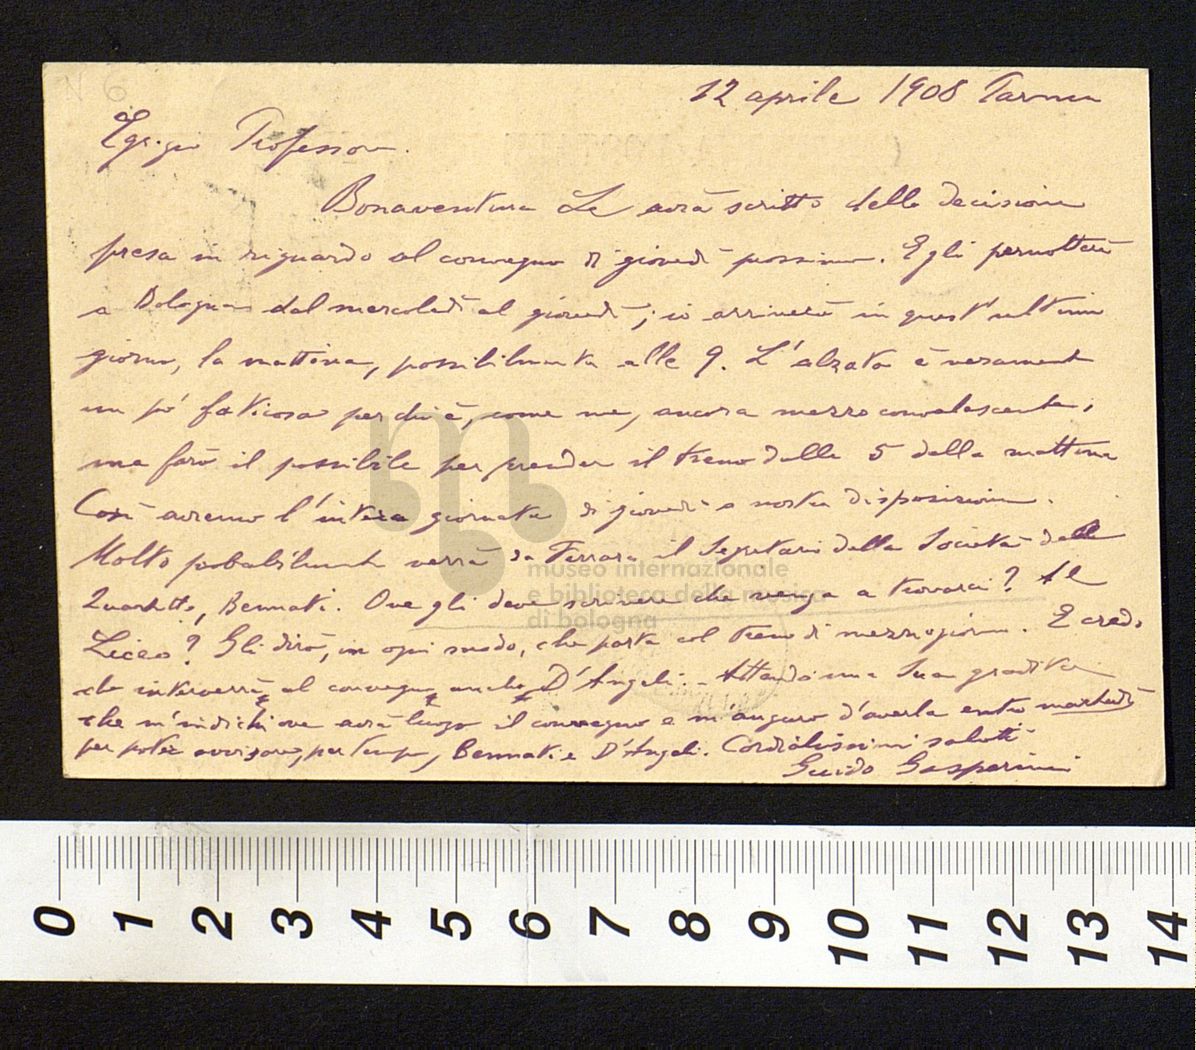 N 6
12 aprile 1908 Parma
Egregio Professore.
Bonaventura Le avrà scritto della decisione
presa in riguardo al convegno di giovedì prossimo. Egli pernotterà
a Bologna dal mercoledì al giovedì; io arriverò in quest'ultimo
giorno, la mattina, possibilmente alle 9. L'alzata è veramente
un po' faticosa per chi è, come me, ancora mezzo convalescente;
ma farò il possibile per prender il treno delle 5 della mattina
Così avremo l'intera giornata di giovedì a nostra disposizione.
Molto probabilmente verrà da Ferrara il Segretario della Società del
Quartetto, Bennati. Ove gli devo scrivere che venga a trovarci? Al
Liceo? Gli dirò, in ogni modo, che parta col treno di mezzogiorno. E credo
che interverrà al convegno anche D'Angeli. - Attendo una Sua gradita
che m'indichi ove avrà luogo il convegno e m'auguro d'averla entro martedì
per poter avvisare, per tempo, Bennati e D'Angeli. Cordialissimi saluti
Guido Gasperini
museo internazionale
e biblioteca della musica
di bologna
0 1 2 3 4 5 6 7 8 9 10 11 12 13 14